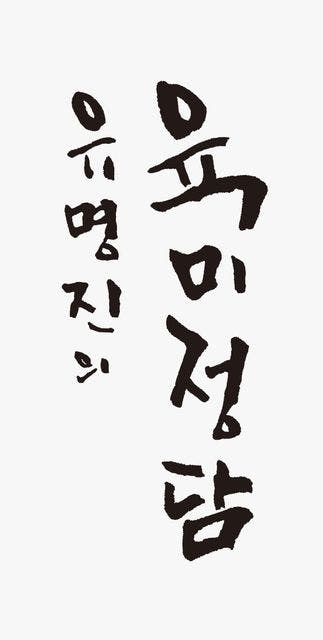 유명진의
육미정담